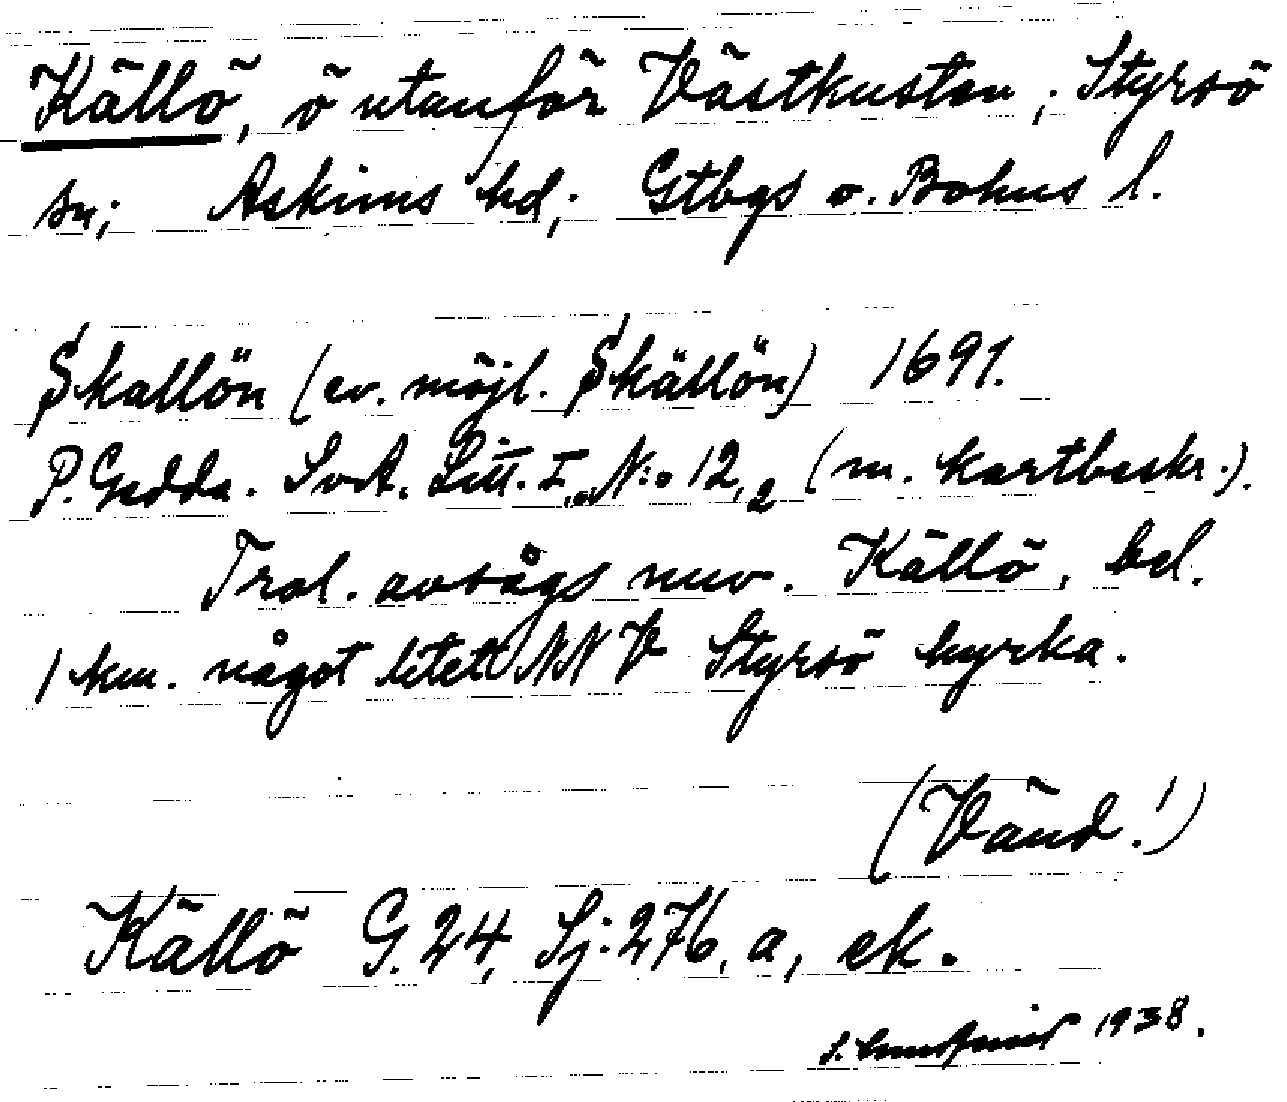 Källö, ö utanför Västkusten; Styrsö
sn; Askims hd; Gtbgs o. Bohus l.
Skallön (ev. möjl. Skällön) 1691.
P. Gedda. SvA. Litt. I, N:o 12,2 (m. kartbeskr.).
Trol. avsågs nuv. Källö, bel.
1 km. något litet NNV Styrsö kyrka.
(Vänd!)
Källö G. 24, Sj: 276, a, ek.
1938.